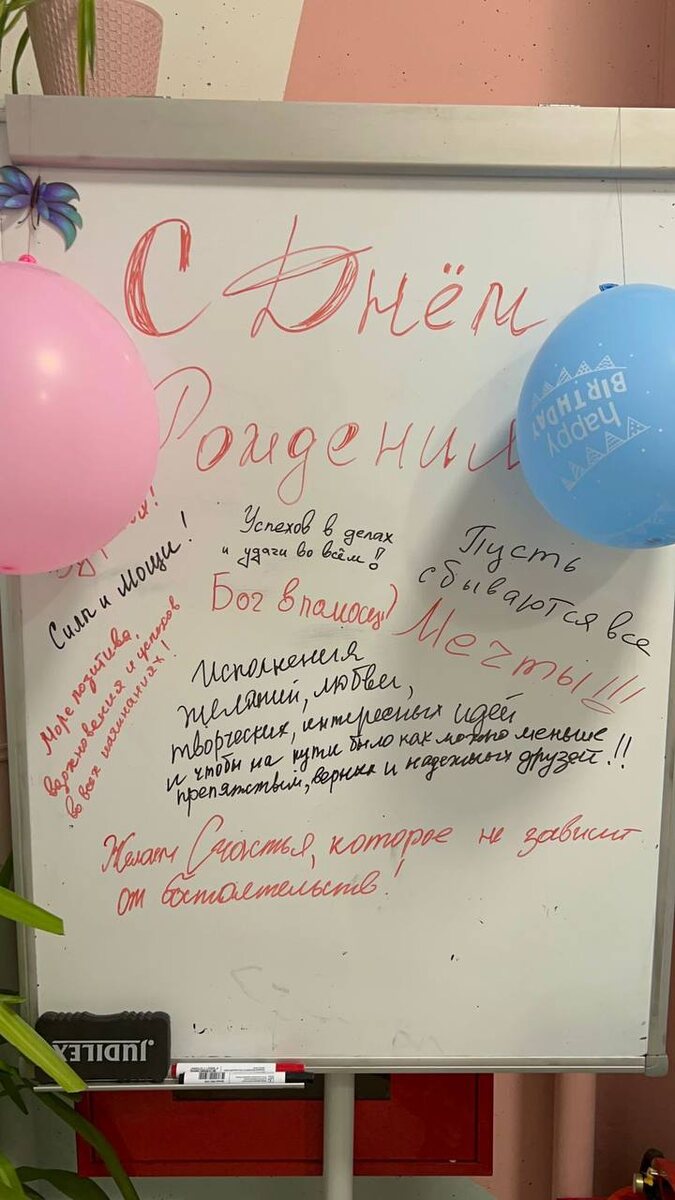 С Днём
Рождения
happy
BIRTHDAY
Успехов в делах
и удачи во всём!!
Пусть
сбываются все
Мечты!!!
Силы и Мощи!
Бог в помощь)
Море позитива,
вдохновения и успехов
во всех начинаниях!
Исполнения
желаний, любви,
творческих, интересных идей
и чтобы на пути было как можно меньше
препятствий, верных и надежных друзей.!!
Желаем Счастья, которое не зависит
от обстоятельств!
JUDILEX